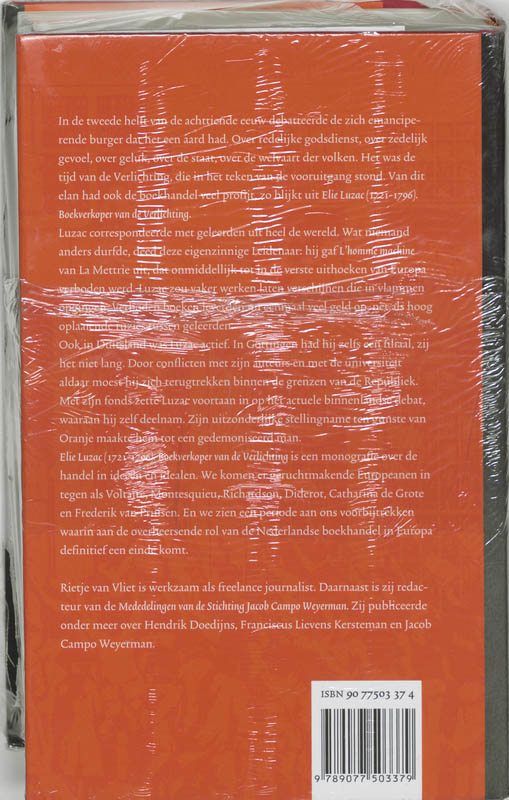 In de tweede helft van de achttiende eeuw debatteerde de zich emancipe-
rende burger dat het een aard had. Over redelijke godsdienst, over zedelijk
gevoel, over geluk, over de staat, over de welvaart der volken. Het was de
tijd van de Verlichting, die in het teken van de vooruitgang stond. Van dit
elan had ook de boekhandel veel profijt, zo blijkt uit Elie Luzac (1721-1796).
Boekverkoper van de Verlichting.
Luzac correspondeerde met geleerden uit heel de wereld. Wat niemand
anders durfde, deed deze eigenzinnige Leidenaar: hij gaf L'homme machine
van La Mettrie uit, dat onmiddellijk tot in de verste uithoeken van Europa
verboden werd. Luzac zou vaker werken laten verschijnen die in vlammen
opgingen. Verboden boeken leverden nu eenmaal veel geld op, net als hoog
oplaaiende ruzies tussen geleerden.
Ook in Duitsland was Luzac actief. In Göttingen had hij zelfs een filiaal, zij
het niet lang. Door conflicten met zijn auteurs en met de universiteit
aldaar moest hij zich terugtrekken binnen de grenzen van de Republiek.
Met zijn fonds zette Luzac voortaan in op het actuele binnenlandse debat,
waaraan hij zelf deelnam. Zijn uitzonderlijke stellingname ten gunste van
Oranje maakte hem tot een gedemoniseerd man.
Elie Luzac (1721-1796). Boekverkoper van de Verlichting is een monografie over de
handel in ideeën en idealen. We komen er geruchtmakende Europeanen in
tegen als Voltaire, Montesquieu, Richardson, Diderot, Catharina de Grote
en Frederik van Pruisen. En we zien een periode aan ons voorbijtrekken
waarin aan de overheersende rol van de Nederlandse boekhandel in Europa
definitief een einde komt.
Rietje van Vliet is werkzaam als freelance journalist. Daarnaast is zij redac-
teur van de Mededelingen van de Stichting Jacob Campo Weyerman. Zij publiceerde
onder meer over Hendrik Doedijns, Franciscus Lievens Kersteman en Jacob
Campo Weyerman.
ISBN 90 77503 37 4
9 789077 503379